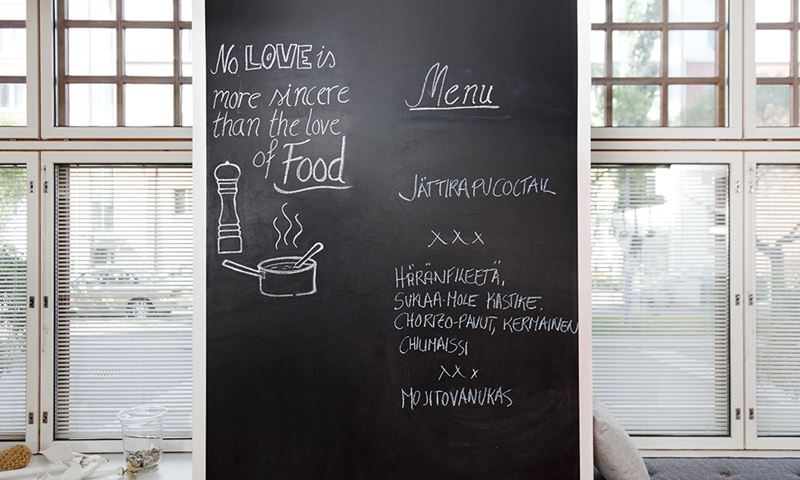 No LOVE is
more sincere
than the love
of Food
Menu
JÄTTIRAPUCOCTAIL
XXX
HÄRÄNFILEETÄ,
SUKLAA-MOLE KASTIKE.
CHORIZO-PAVUT, KERMAINEN
CHILIMAISSI
XXX
MOJITOVANUKAS